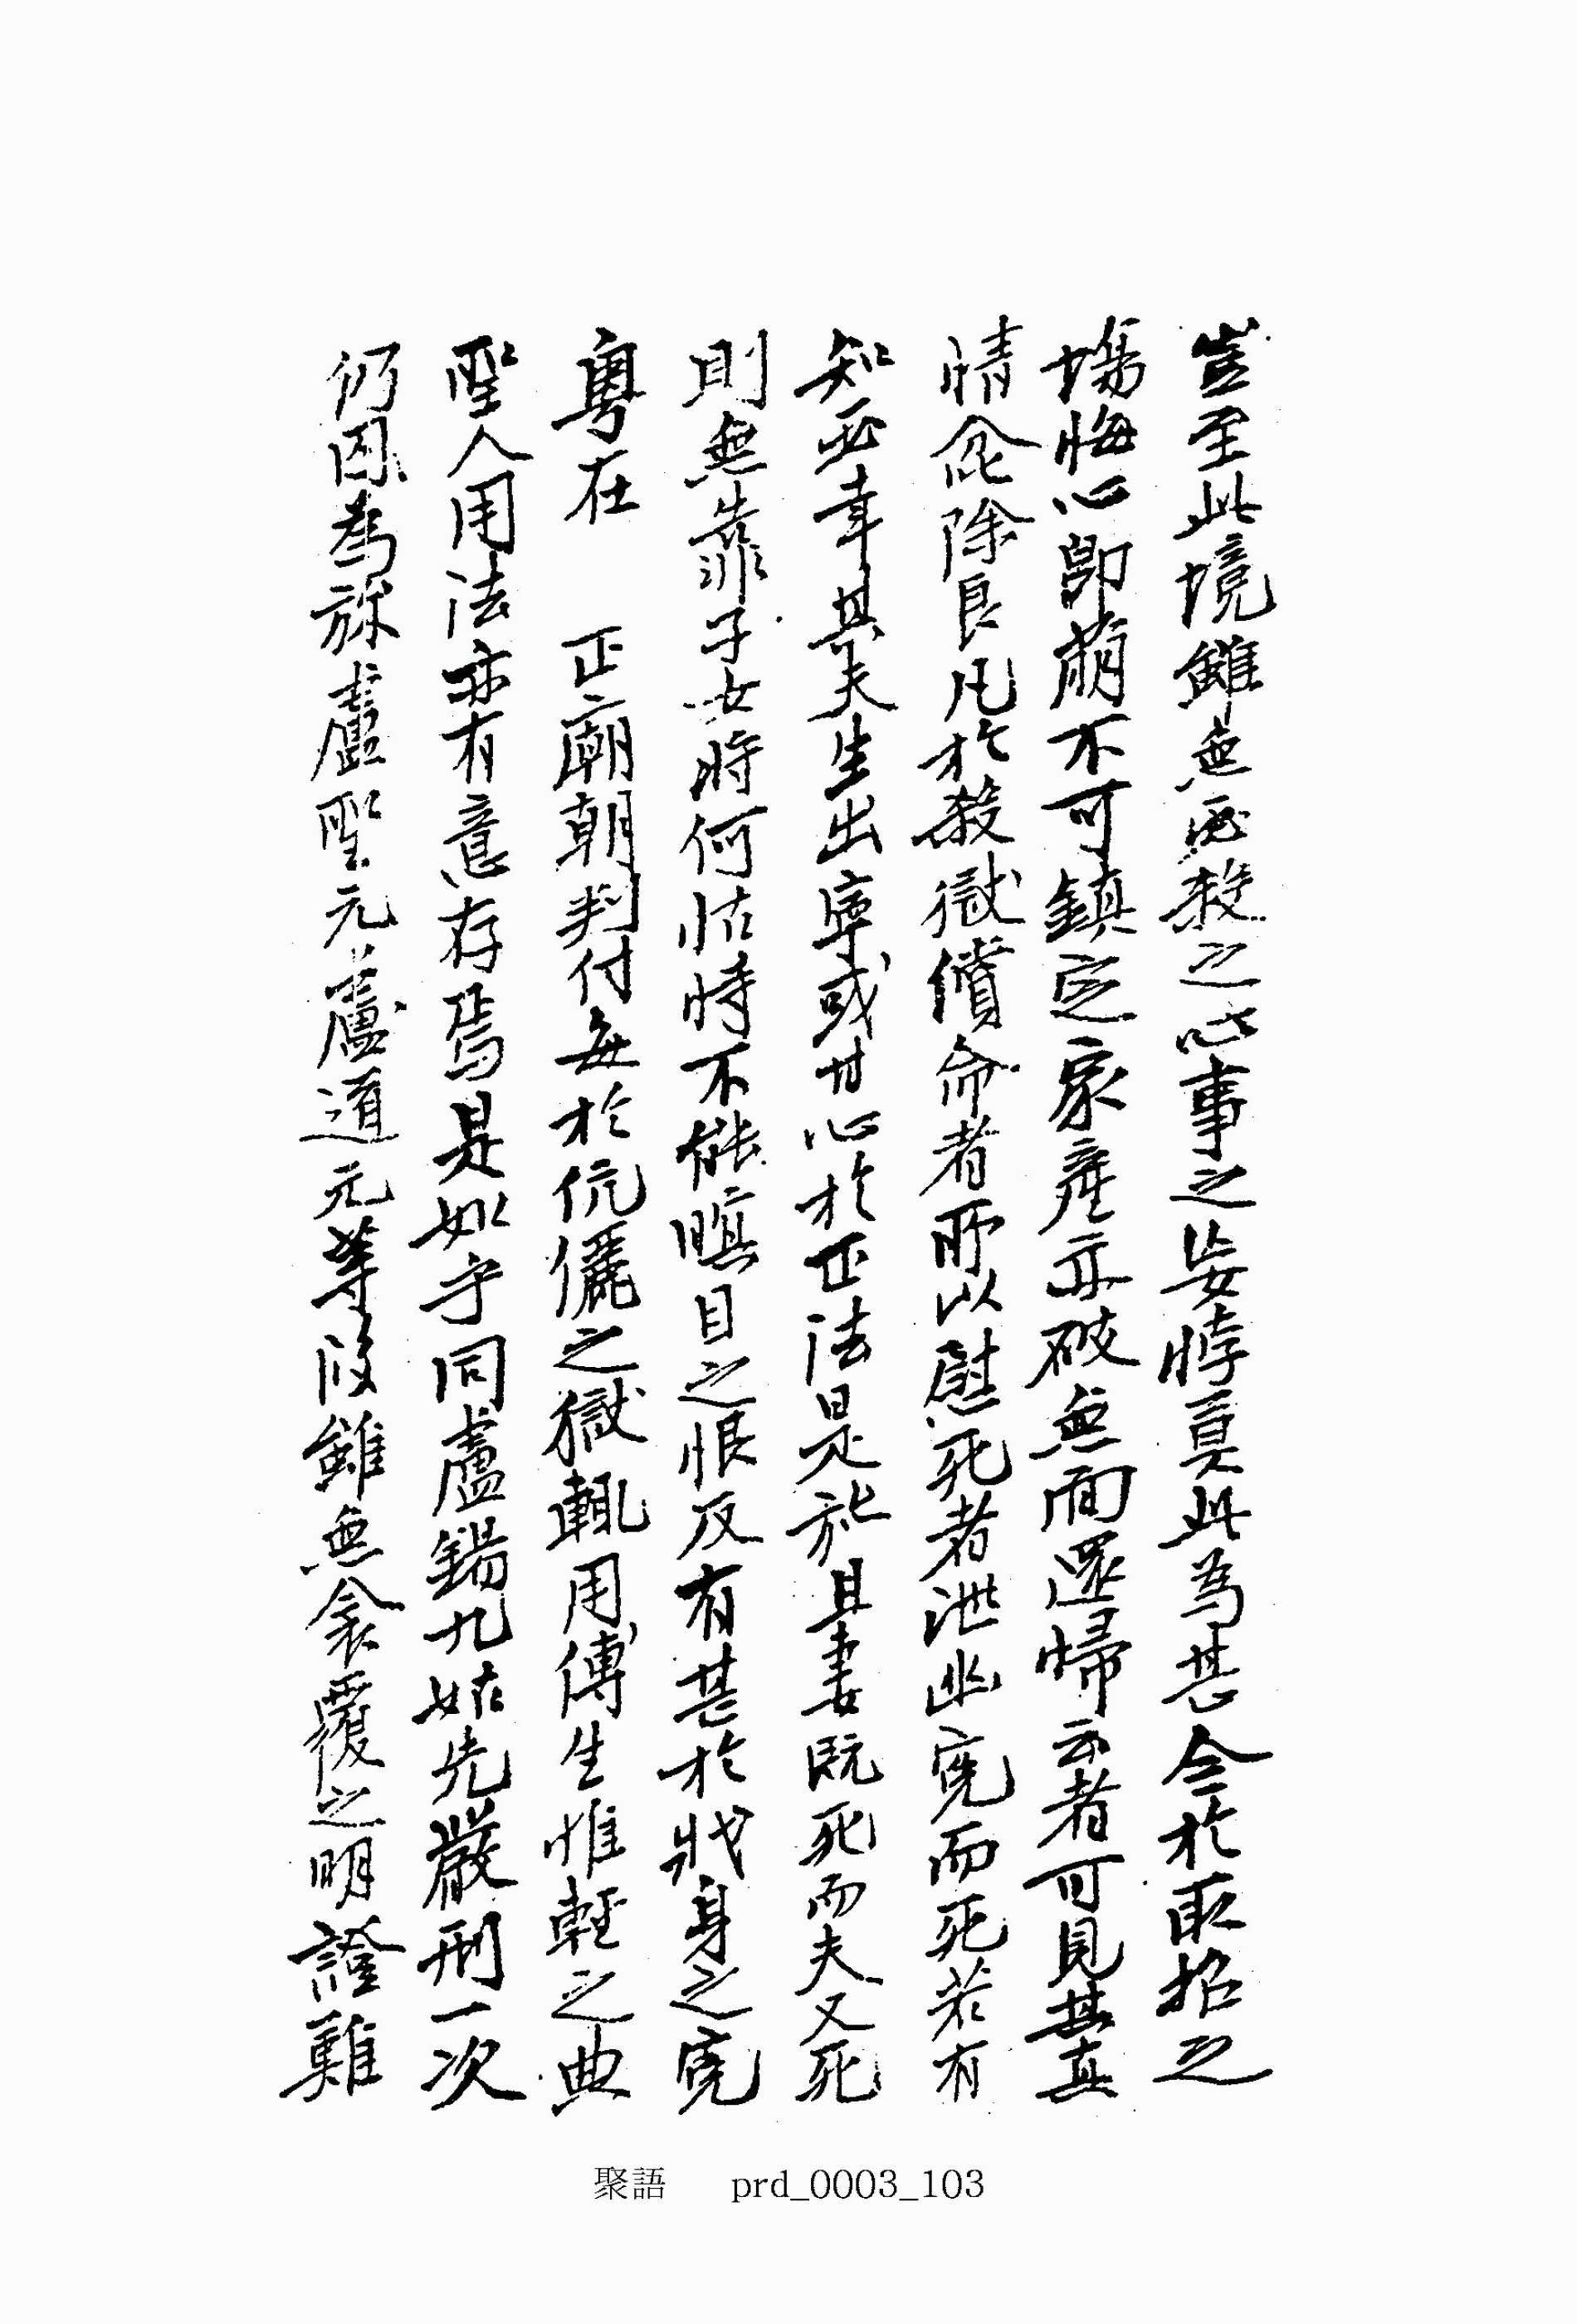 豈至此境雖無必殺之心事之妄悖莫此爲甚今於取招之
場悔心卽萠不可鎭定家産亦破無面還歸云者可見其眞
情除良凡於殺獄償命者所以慰死者泄幽寃而死若有
知必幸其夫生出牢或甘心於正法是旀且妻旣死而夫又死
則無靠子女將何怙恃不能瞑目之恨反有甚於戕身之寃
粤在 正廟朝判付每於伉儷之獄輒用傅生惟輕之典
聖人用法亦有意存焉是如乎同盧錫九姑先嚴刑一次
仍囚爲旀盧聖元盧道元等段雖無衾覆之明證難
聚語 prd_0003_103